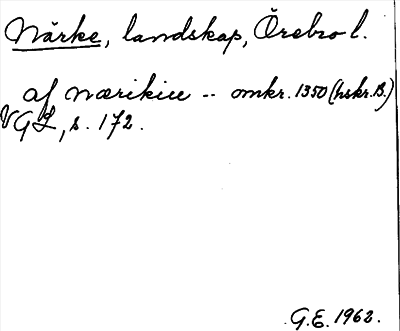 Närke, landskap, Örebro l.
af nærikiu -- omkr. 1350 (hskr. B.)
VGL, s. 172.
G.E. 1962.